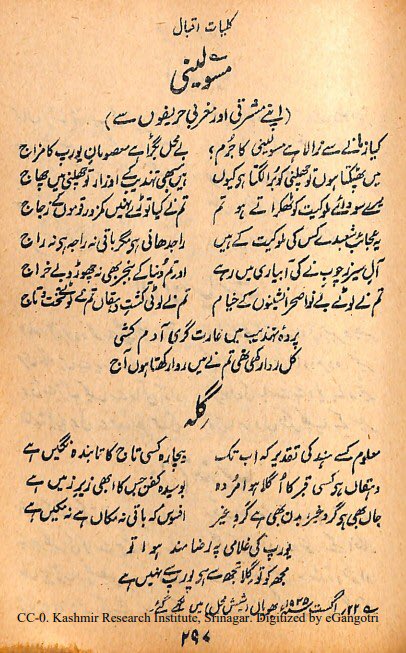 کلیات اقبال
مسولینی
(اپنے مشرقی اور مغربی حریفوں سے)
کیا زمانے سے نرالا ہے مسولینی کا جُرم؟ بے محل بگڑا ہے معصومانِ یورپ کا مزاج
میں پھٹکتا ہوں تو چھلنی کو بُرا لگتا ہے کیوں ہیں سبھی تہذیب کے اوزار! تو چھلنی میں چھاج
میرے سودائے ملوکیت کو ٹھکراتے ہو تم تم نے کیا توڑے نہیں کمزور قوموں کے زجاج
یہ عجائب شعبدے کس کی ملوکیت کے ہیں راجدھانی ہے مگر باقی نہ راجہ ہے نہ راج
آلِ سیزر چوبِ نَے کی آبیاری میں رہے اور تم دُنیا کے بنجر بھی نہ چھوڑو بے خراج
تم نے لوٹے بے نوا صحرا نشینوں کے خیام تم نے لوٹی کشتِ دہقاں تم نے لوٹے تخت و تاج
پردۂ تہذیب میں غارت گری آدم کشی
کل روا رکھی تھی تم نے میں روا رکھتا ہوں آج
گلہ
معلوم کسے ہند کی تقدیر کہ اب تک بیچارہ کسی تاج کا تابندہ نگیں ہے
دہقاں ہے کسی قبر کا اُگلا ہوا مُردہ بوسیدہ کفن جس کا ابھی زیرِ زمیں ہے
جاں بھی گروِ غیر بدن بھی گروِ غیر افسوس کہ باقی نہ مکاں ہے نہ مکیں ہے
یورپ کی غلامی پہ رضا مند ہوا تو
مجھ کو تو گلہ تجھ سے ہے یورپ سے نہیں ہے
۲۲؍ اگست ۱۹۳۵ء بھوپال (شیش محل) میں لکھے گئے
CC-0. Kashmir Research Institute, Srinagar. Digitized by eGangotri
۲۹۷